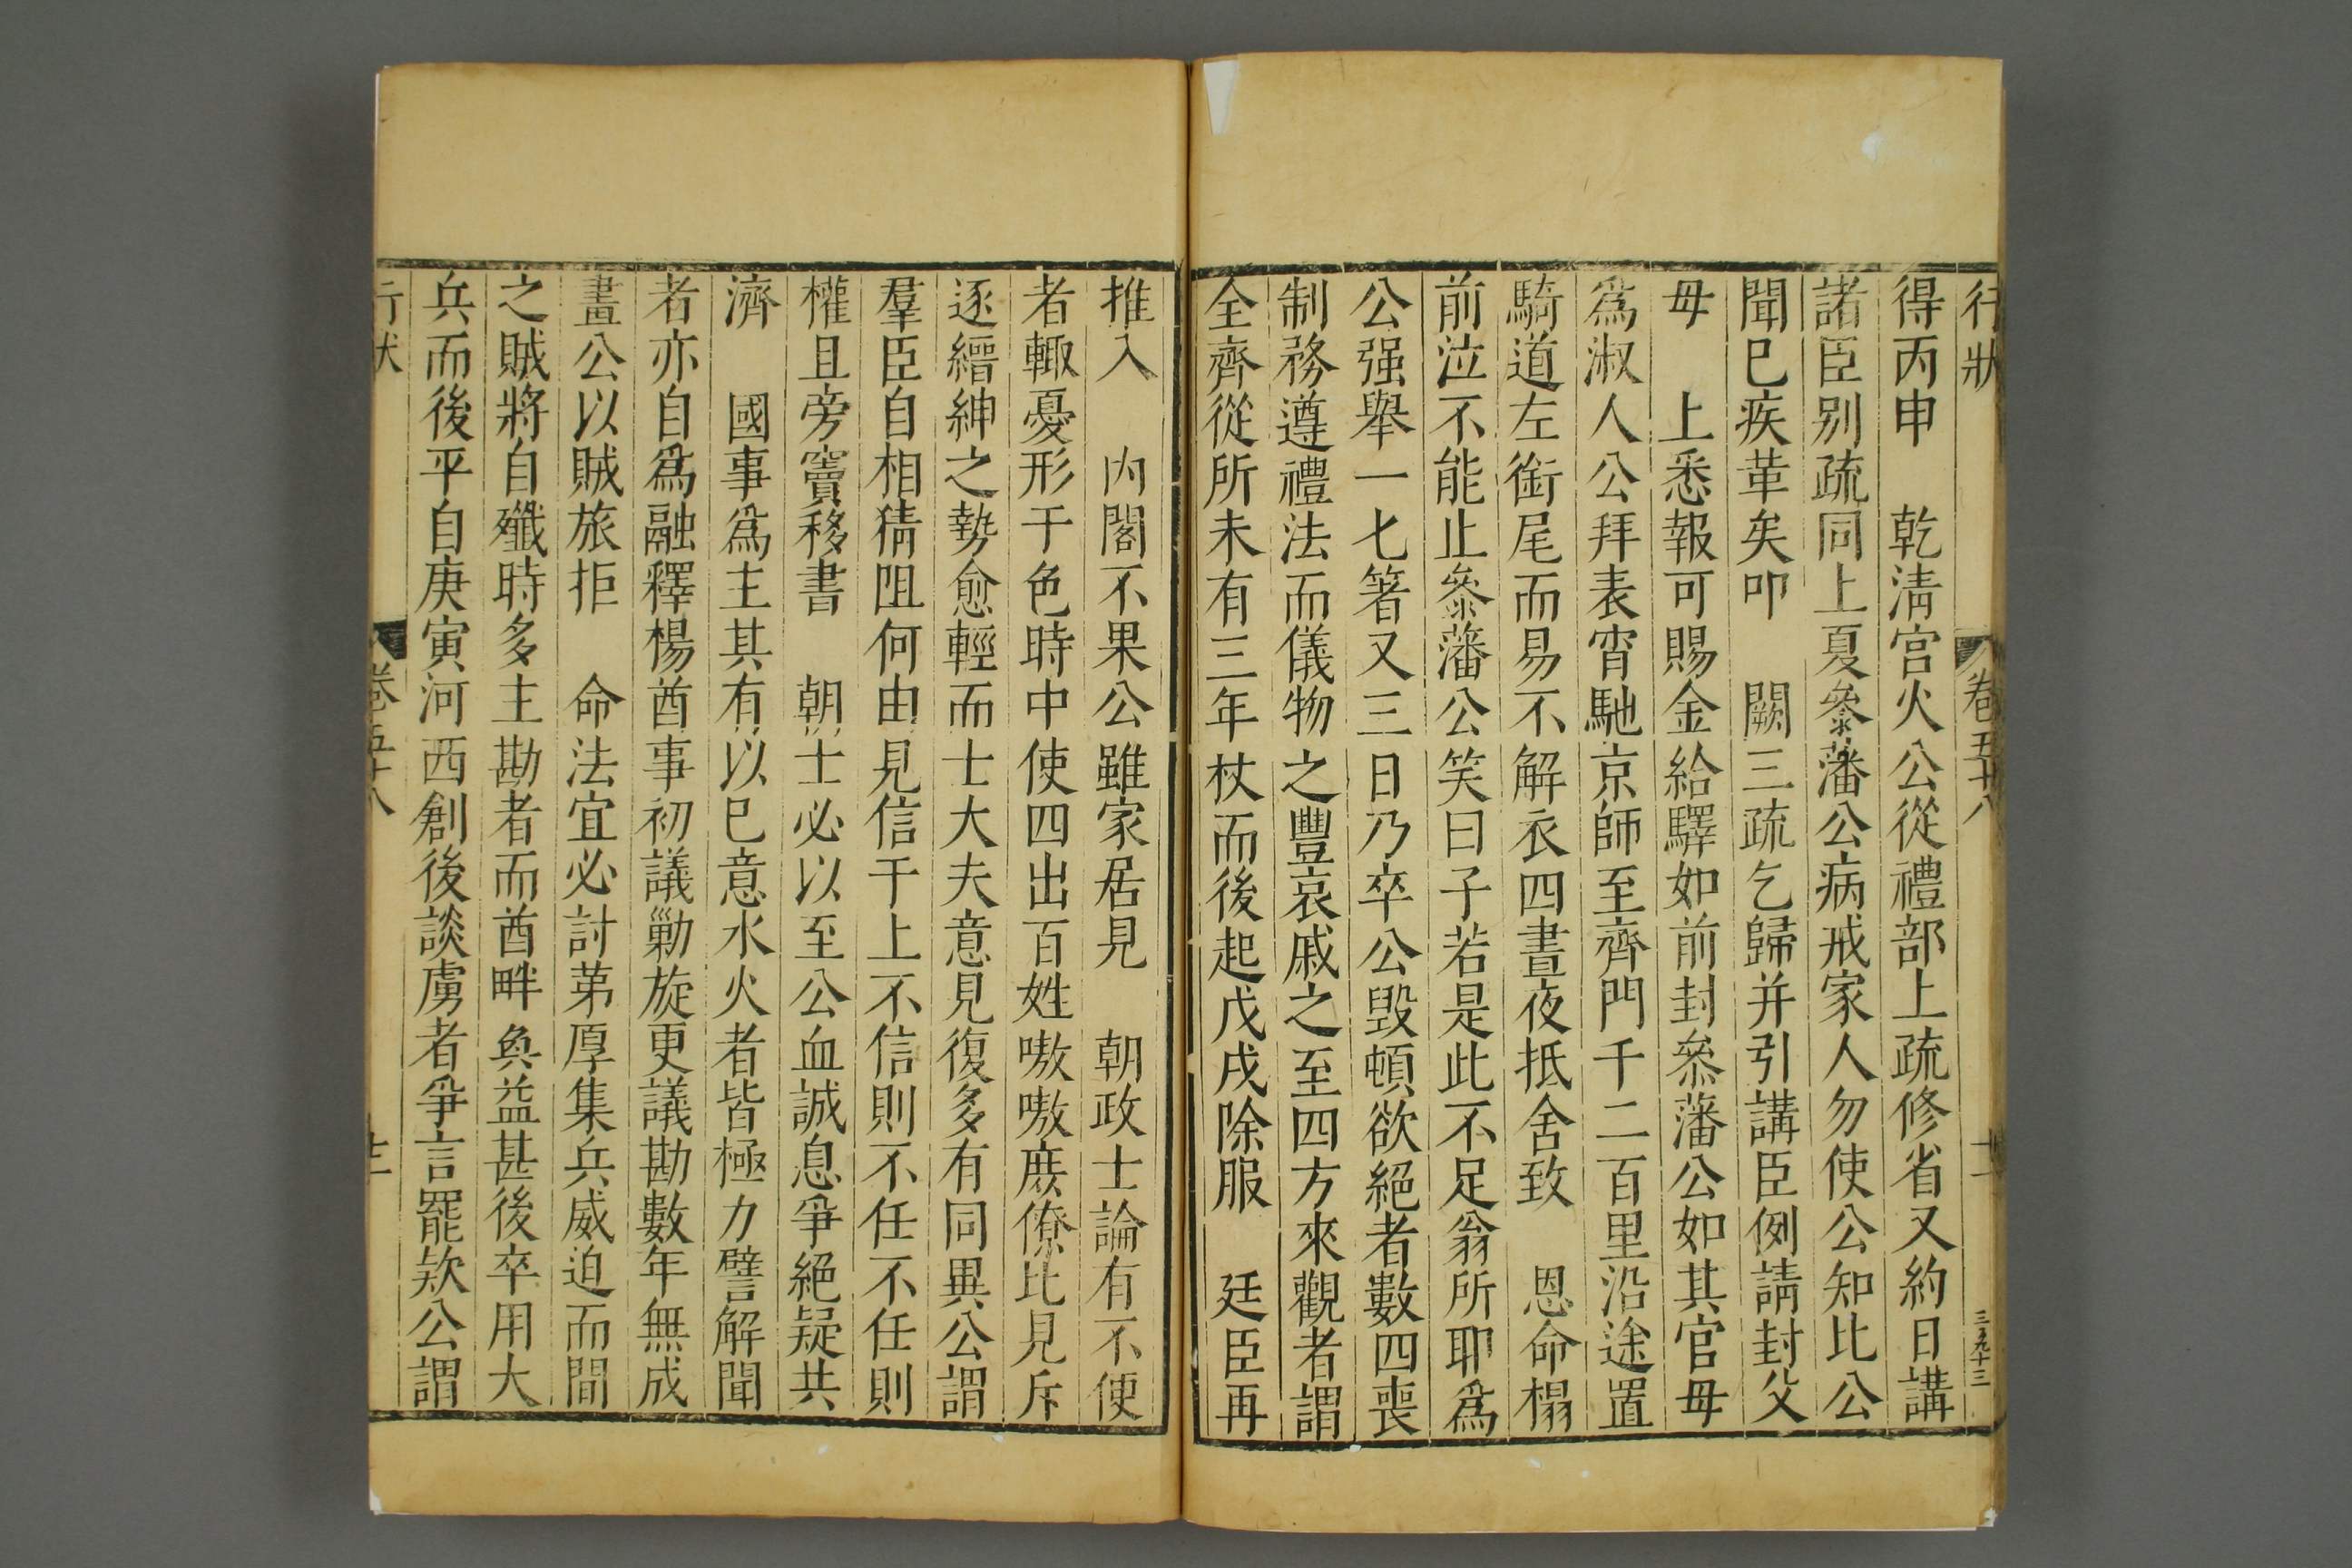 行狀 卷五十八 十一 三百九十三
得丙申 乾淸宮火公從禮部上疏修省又約日講
諸臣别疏同上夏參藩公病戒家人勿使公知比公
聞已疾革矣叩 闕三疏乞歸并引講臣例請封父
母 上悉報可賜金給驛如前封叅藩公如其官母
爲淑人公拜表宵馳京師至齊門千二百里沿途置
騎道左銜尾而易不解衣四晝夜抵舍致 恩命榻
前泣不能止參藩公笑曰子若是此不足翁所耶爲
公强舉一匕箸又三日乃卒公毀頓欲絕者數四喪
制務遵禮法而儀物之豐哀戚之至四方來觀者謂
全齊從所未有三年杖而後起戊戌除服 廷臣再
推入 内閣不果公雖家居見 朝政士論有不便
者輙憂形于色時中使四出百姓嗷嗷庶僚比見斥
逐縉紳之勢愈輕而士大夫意見復多有同異公謂
羣臣自相猜阻何由見信于上不信則不任不任則
權且旁竇移書 朝士必以至公血誠息爭絕疑共
濟 國事爲主其有以已意水火者皆極力譬解聞
者亦自爲融釋楊酋事初議勦旋更議勘數年無成
畫公以賊旅拒 命法宜必討苐厚集兵威迫而間
之賊將自殲時多主勘者而酋畔奐益甚後卒用大
兵而後平自庚寅河西創後談虜者爭言罷欵公謂
行狀 卷五十八 十二